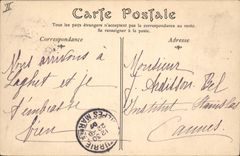 II
Carte Postale
Tous les pays étrangers n'acceptent pas la correspondance au recto.
Se renseigner à la poste.
Correspondance
Adresse
Nous arrivons à
Laghet et je
t'embrasse
bien
Monsieur
Ardisson Bel
Institut Stanislas
Cannes